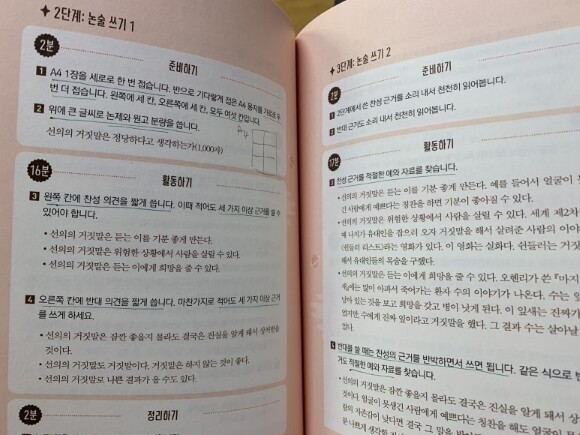 2단계: 논술 쓰기 1
2분
준비하기
1 A4 1장을 세로로 한 번 접습니다. 반으로 기다랗게 접은 A4 용지를 가로로 두
번 더 접습니다. 왼쪽에 세 칸, 오른쪽에 세 칸, 모두 여섯 칸입니다.
2 위에 큰 글씨로 논제와 원고 분량을 씁니다.
선의의 거짓말은 정당하다고 생각하는가(1,000자)
A4
16분
활동하기
3 왼쪽 칸에 찬성 의견을 짧게 씁니다. 이때 적어도 세 가지 이상 근거를 들 수
있어야 합니다.
• 선의의 거짓말은 듣는 이를 기분 좋게 만든다.
• 선의의 거짓말은 위험한 상황에서 사람을 살릴 수 있다.
• 선의의 거짓말은 듣는 이에게 희망을 줄 수 있다.
4 오른쪽 칸에 반대 의견을 짧게 씁니다. 마찬가지로 적어도 세 가지 이상 근거
를 쓰게 하세요.
• 선의의 거짓말은 잠깐 좋을지 몰라도 결국은 진실을 알게 돼서 상처받을
것이다.
• 선의의 거짓말도 거짓말이다. 거짓말은 하지 않는 것이 좋다.
• 선의의 거짓말로 나쁜 결과가 올 수도 있다.
2분
정리하기
3단계: 논술 쓰기 2
2분
준비하기
1 2단계에서 쓴 찬성 근거를 소리 내서 천천히 읽어봅니다.
2 반대 근거도 소리 내서 천천히 읽어봅니다.
17분
활동하기
3 찬성 근거를 적절한 예와 자료를 찾습니다.
• 선의의 거짓말은 듣는 이를 기분 좋게 만든다. 예를 들어서 얼굴이 못
긴 사람에게 예쁘다는 칭찬을 하면 기분이 좋아질 수 있다.
• 선의의 거짓말은 위험한 상황에서 사람을 살릴 수 있다. 세계 제2차
때 나치가 유대인을 잡으러 오자 거짓말을 해서 살려준 사람의 이야
〈쉰들러 리스트〉라는 영화가 있다. 이 영화는 실화다. 쉰들러는 거짓
해서 유대인들의 목숨을 구했다.
• 선의의 거짓말은 듣는 이에게 희망을 줄 수 있다. 오헨리가 쓴 『마지
새』에는 많이 아파서 죽어가는 환자 수의 이야기가 나온다. 수는
남아 있는 것을 보고 희망을 갖고 병이 낫게 된다. 이 잎새는 진짜가
었지만, 수에게 진짜 잎이라고 거짓말을 했다. 그 결과 수는 살아날
있었다.
4 반대를 쓸 때는 찬성의 근거를 반박하면서 쓰면 됩니다. 같은 식으로 반
거도 적절한 예와 자료를 찾습니다.
• 선의의 거짓말은 잠깐은 좋을지 몰라도 결국은 진실을 알게 돼서 상
것이다. 얼굴이 못생긴 사람에게 예쁘다는 칭찬을 해도 얼굴이
람의 자존감이 낮다면 결국 그 말을